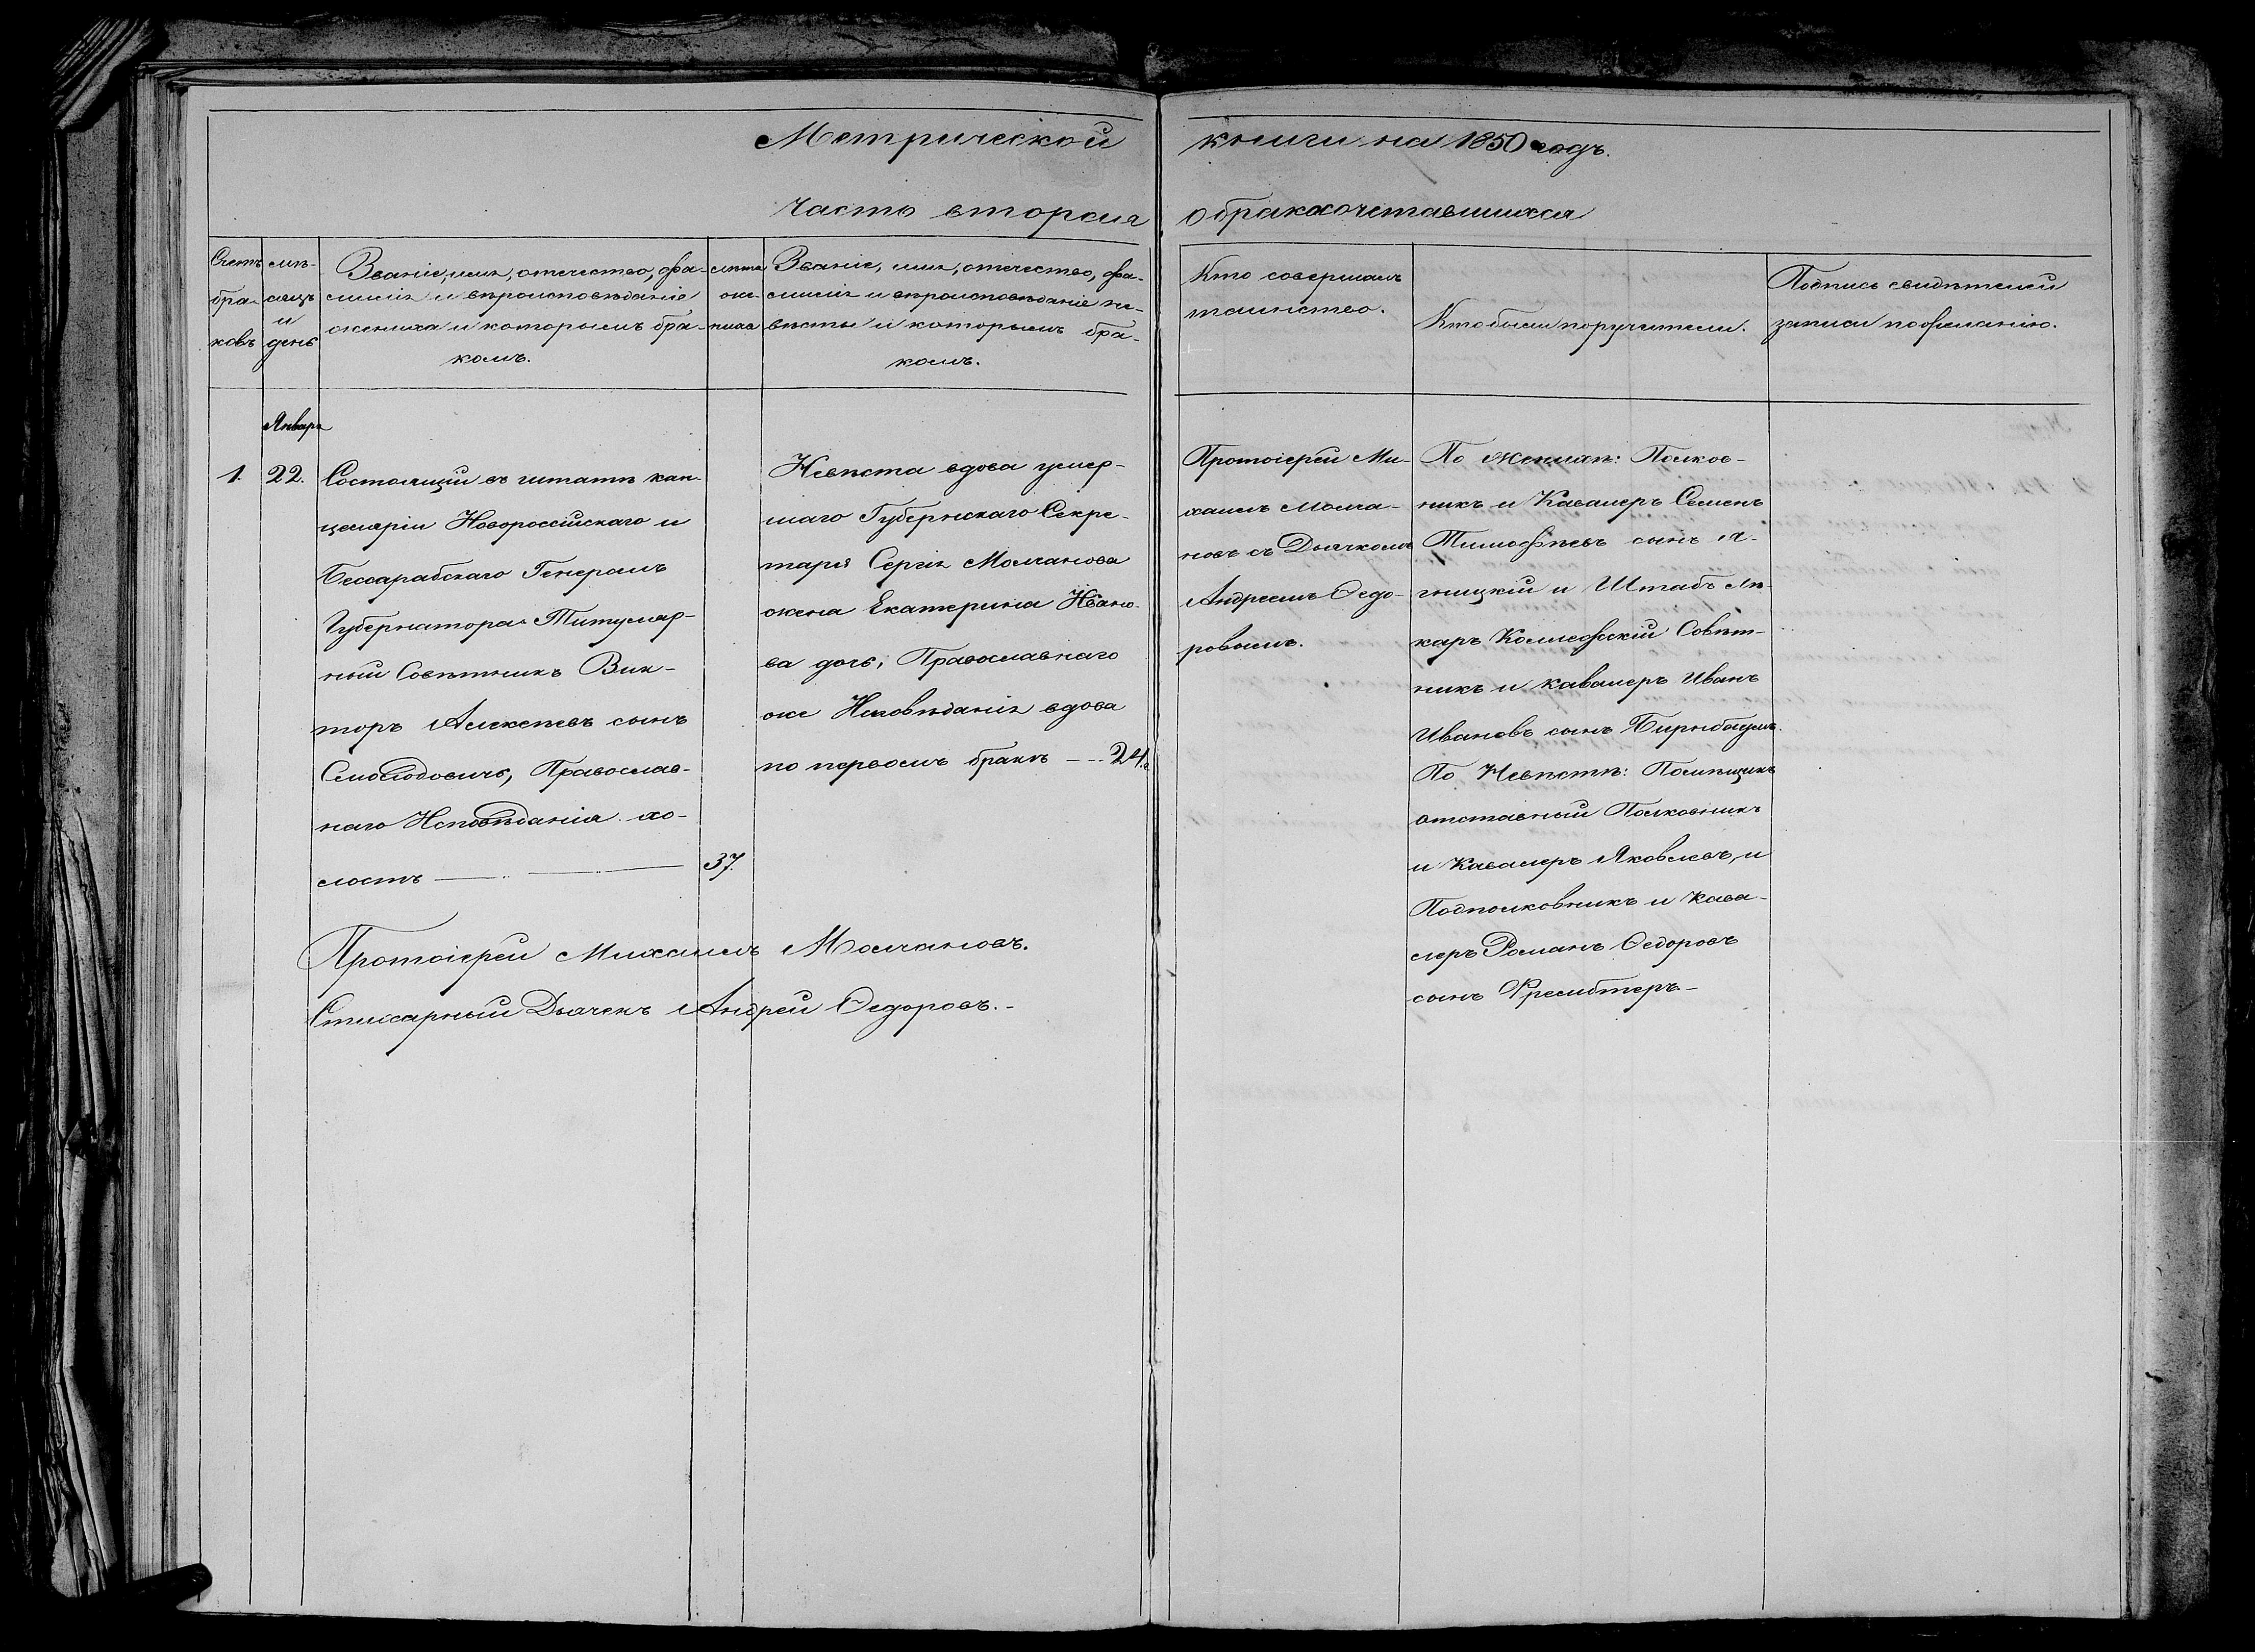 Метрической книги на 1850 годъ.
часть вторая о бракосочетавшихся
Счетъ бра-ковъ
мѣ-сяцъ и день
Званіе, имя, отечество, фа-
милія и вѣроисповѣданіе
жениха и которымъ бра-
комъ.
лѣта
же-
ниха
Званіе, имя, отечество, фа-
милія и вѣроисповѣданіе не-
вѣсты и которымъ бра-
комъ.
Кто совершалъ
таинство.
Кто были поручители.
Подпись свидѣтелей
записи по желанію.
Января
1. 22.
Состоящій въ штатѣ кан-
целяріи Новороссійскаго и
Бессарабскаго Генералъ
Губернатора Титуляр-
ный Совѣтникъ Вик-
торъ Алексѣевъ сынъ
Православ-
наго Исповѣданія хо-
лостъ 37.
Невѣста вдова умер-
шаго Губернскаго Секре-
таря Сергія Молчанова
жена Екатерина Ивано-
ва дочь, Православнаго
же Исповѣданія вдова
по первомъ бракѣ - - 24.
Протоіерей Ми-
хаилъ Молча-
новъ съ Дьячкомъ
Андреемъ Ѳедо-
ровымъ.
По Женихѣ: Полков-
никъ и Кавалеръ Семенъ
Тимофѣевъ сынъ Я-
гницкій и Штабъ Лѣ-
карь Коллежскій Совѣт-
никъ и Кавалеръ Иванъ
Ивановъ сынъ Бирнбаумъ.
По Невѣстѣ: Помѣщикъ
отставный Полковникъ
и Кавалеръ Яковлевъ, и
Подполковникъ и Кава-
леръ Романъ Ѳедоровъ
сынъ
Протоіерей Михаилъ Молчановъ.
Стихарный Дьячекъ Андрей Ѳедоровъ. -